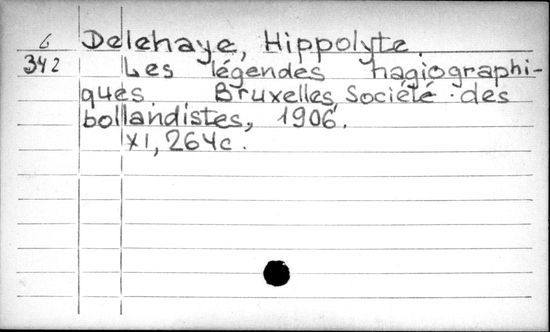 6 Delehaye, Hippolyte.
342 Les légendes hagiographi-
ques. Bruxelles, Société des
bollandistes, 1906.
XI, 264c.